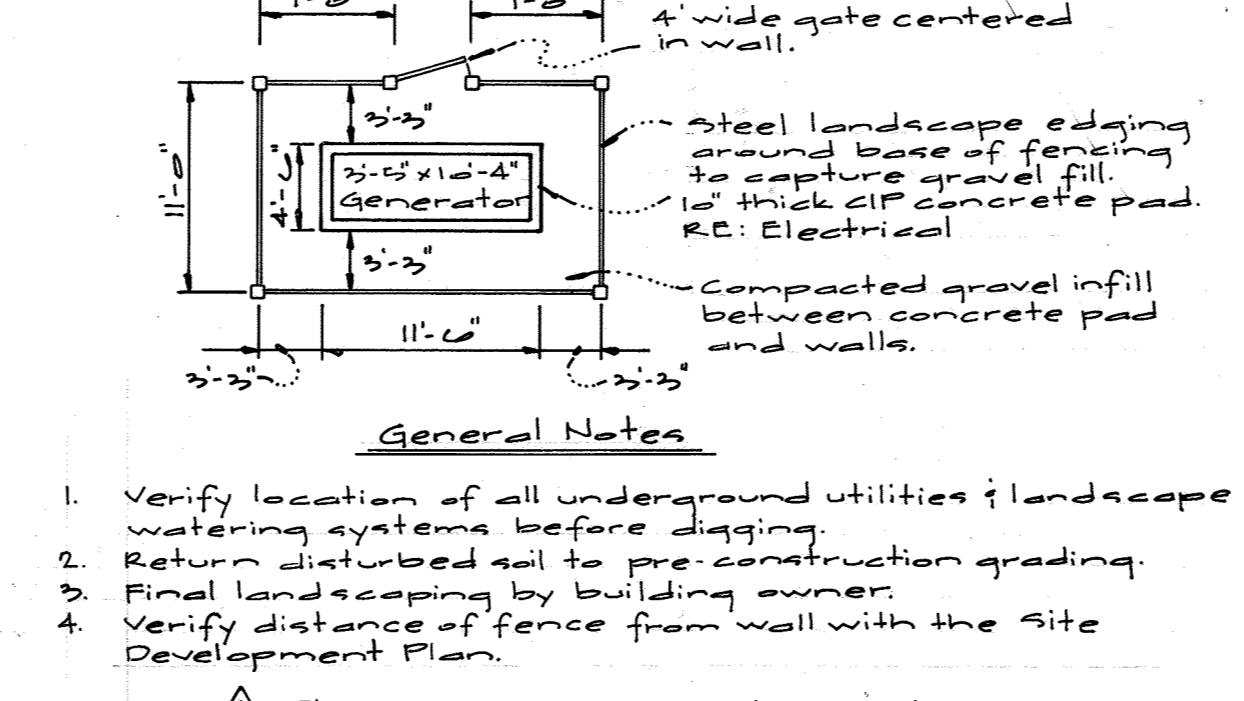 4' wide gate centered
in wall.
3'-3"
steel landscape edging
around base of fencing
to capture gravel fill.
11'-0"
4'-6"
3'-5" x 10'-4"
Generator
10" thick CIP concrete pad.
RE: Electrical
3'-3"
Compacted gravel infill
between concrete pad
and walls.
11'-6"
3'-3"
3'-3"
General Notes
1. Verify location of all underground utilities & landscape
watering systems before digging.
2. Return disturbed soil to pre-construction grading.
3. Final landscaping by building owner.
4. Verify distance of fence from wall with the Site
Development Plan.